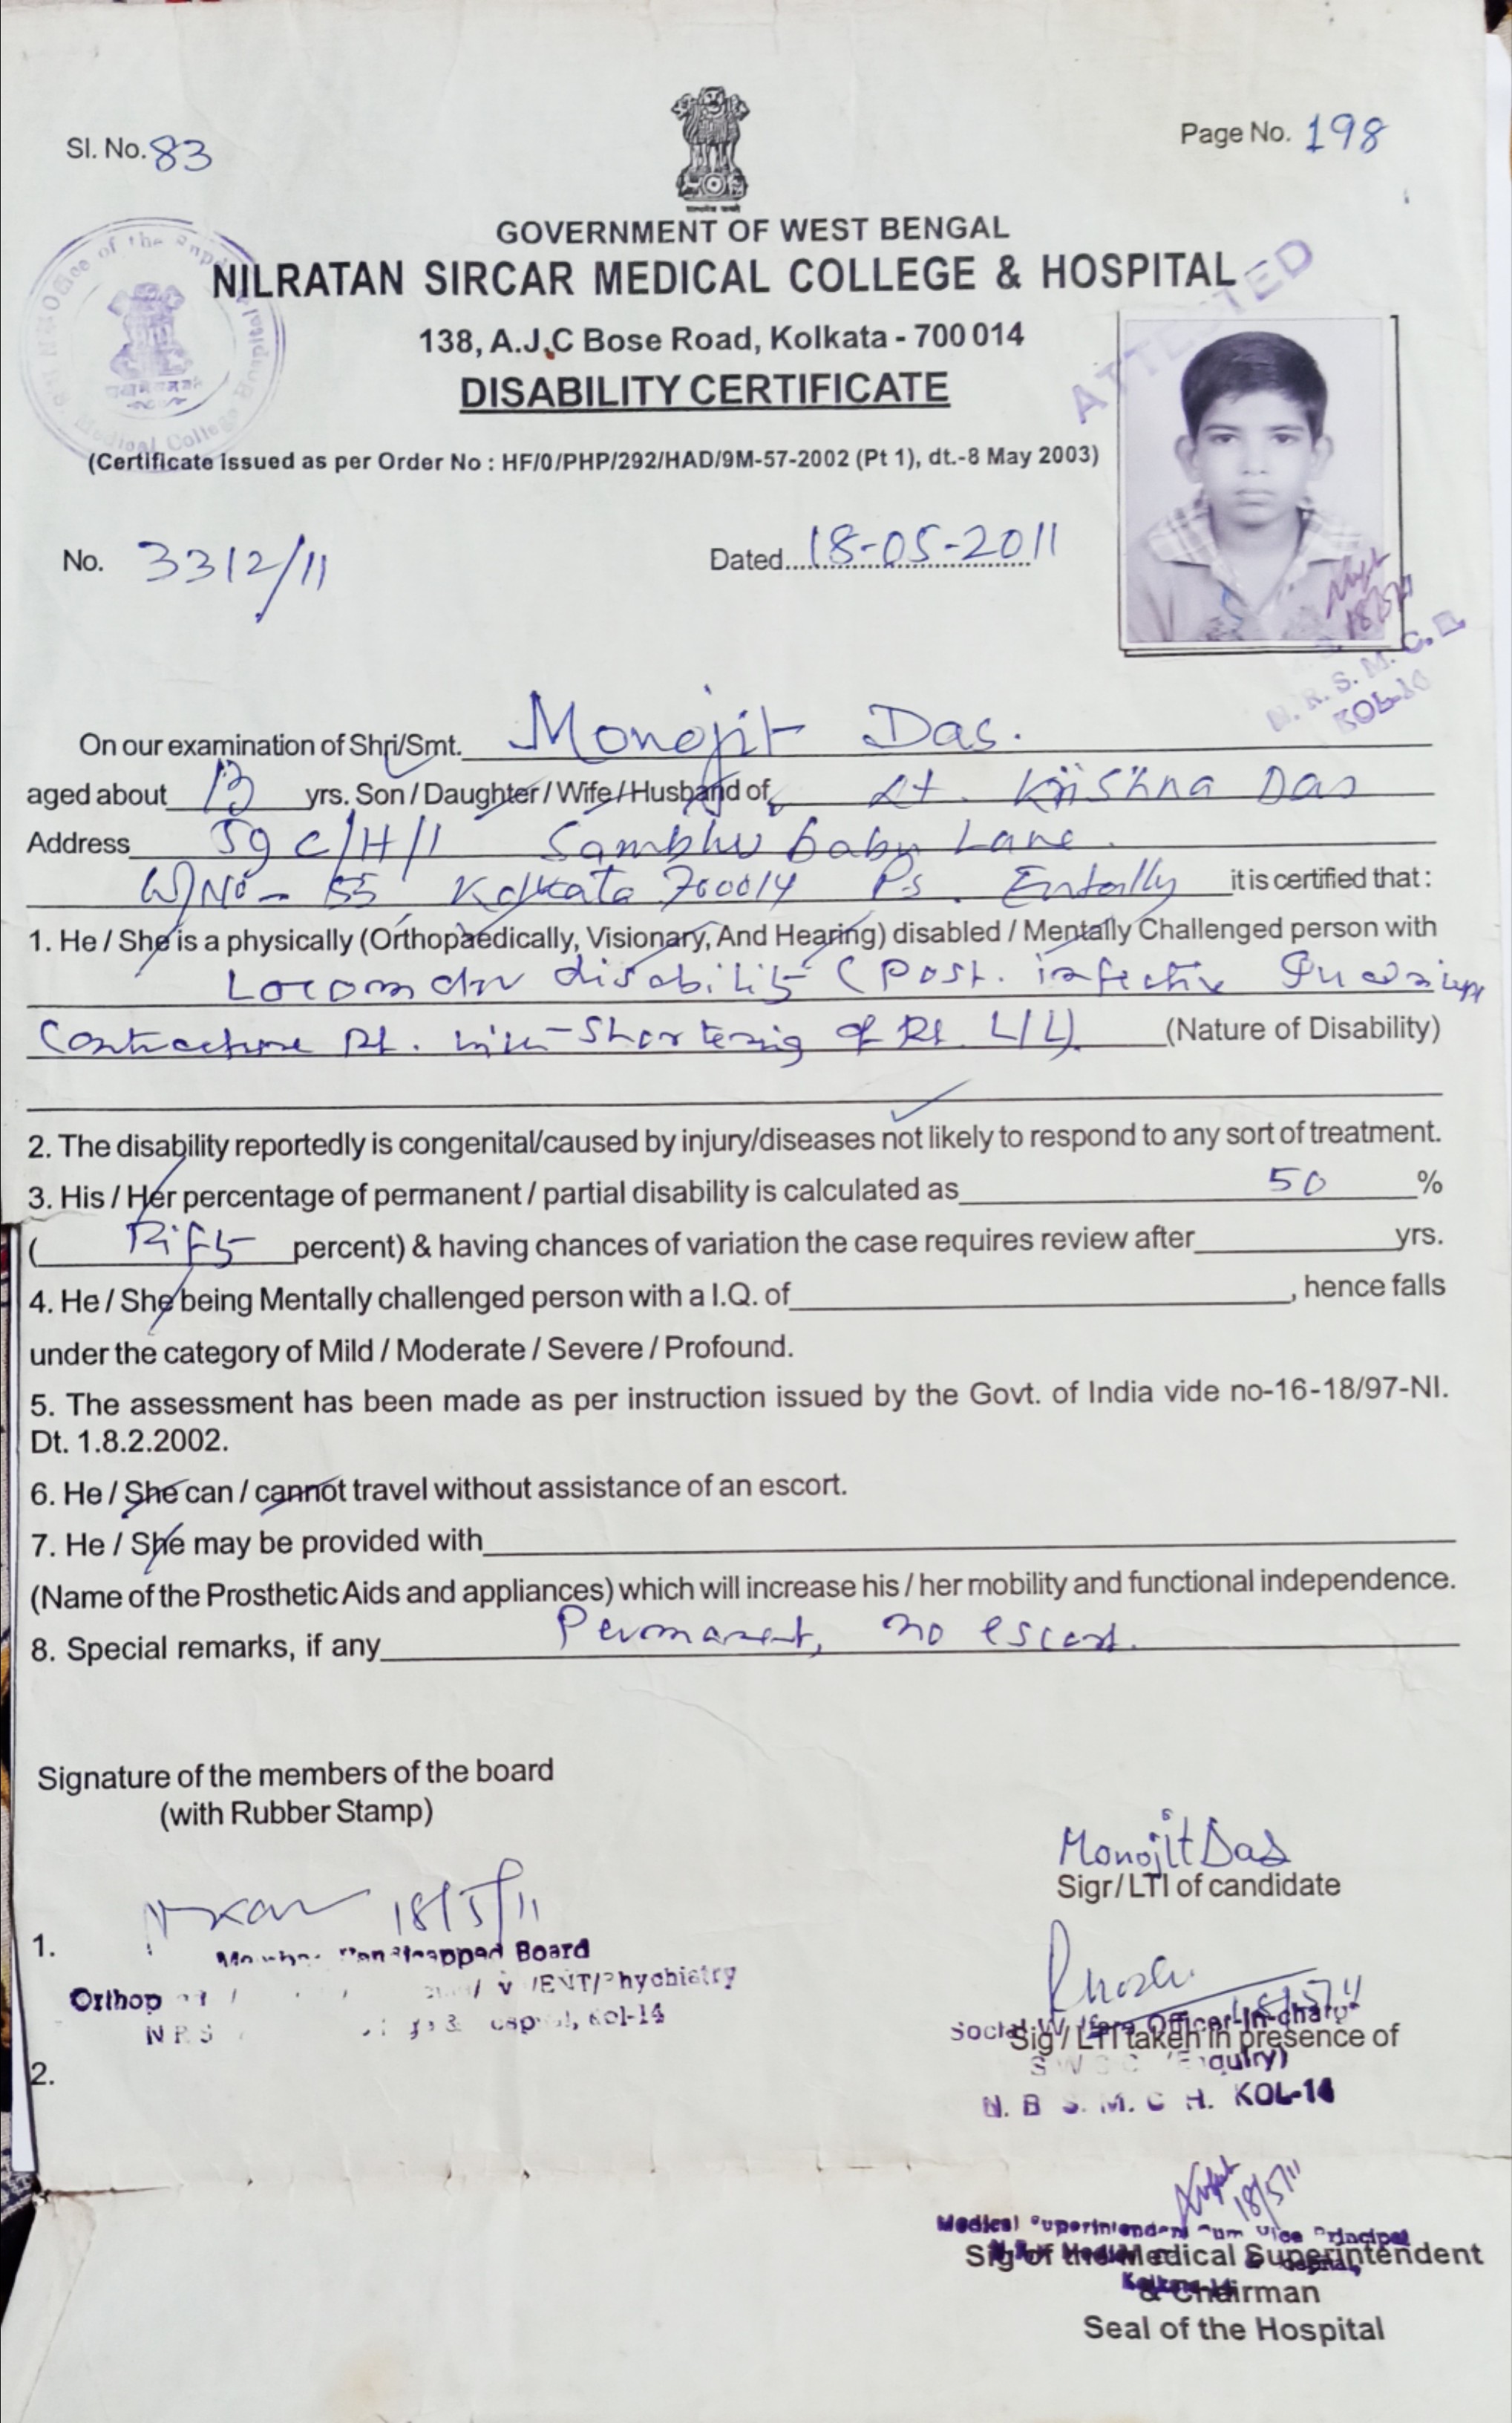 Sl. No. 83
Page No. 198
GOVERNMENT OF WEST BENGAL
NILRATAN SIRCAR MEDICAL COLLEGE & HOSPITAL
138, A.J.C Bose Road, Kolkata - 700 014
DISABILITY CERTIFICATE
ATTESTED
(Certificate issued as per Order No : HF/0/PHP/292/HAD/9M-57-2002 (Pt 1), dt.-8 May 2003)
No. 3312/11
Dated 18-05-2011
N. R. S. M. C. H
KOL-14
On our examination of Shri/Smt. Monojit Das.
aged about 13 yrs. Son / Daughter / Wife / Husband of Lt. Krishna Das
Address 59 C/H/1 Sambhu babu Lane.
W/No - 55 Kolkata 700014 Ps. Entally it is certified that :
1. He / She is a physically (Orthopaedically, Visionary, And Hearing) disabled / Mentally Challenged person with
Locomotor disability (Post. infective
Contracture Rt. with Shortening of Rt. L/L) (Nature of Disability)
2. The disability reportedly is congenital/caused by injury/diseases not likely to respond to any sort of treatment.
3. His / Her percentage of permanent / partial disability is calculated as 50 %
( Fifty percent) & having chances of variation the case requires review after yrs.
4. He / She being Mentally challenged person with a I.Q. of , hence falls
under the category of Mild / Moderate / Severe / Profound.
5. The assessment has been made as per instruction issued by the Govt. of India vide no-16-18/97-NI.
Dt. 1.8.2.2002.
6. He / She can / cannot travel without assistance of an escort.
7. He / She may be provided with
(Name of the Prosthetic Aids and appliances) which will increase his / her mobility and functional independence.
8. Special remarks, if any Permanent, no escort.
Signature of the members of the board
(with Rubber Stamp)
Monojit Das
Sigr/ LTI of candidate
18/5/11
1.
Board
Orthop /ENT/Phychiatry
Kol-14
18/5/11
Officer-In-charge
Sig / LTI taken in presence of
N. R. S. M. C. H. KOL-14
2.
18/5/11
Medical Superintendent Cum Vice Principal
Sig of the Medical Superintendent
& Chairman
Seal of the Hospital